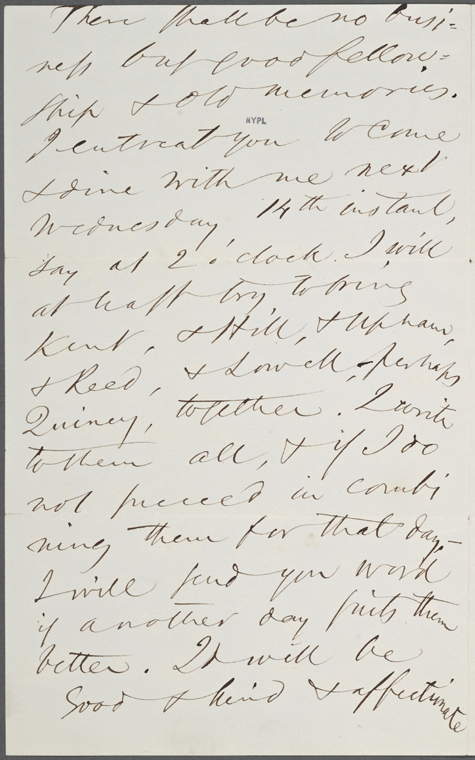 There shall be no busi=
ness but good fellow=
ship & old memories.
NYPL
I entreat you to come
& dine with me next
Wednesday 14th instant,
say at 2 o'clock. I will
at least try to bring
Kent, & Hill, & Upham,
& Reed, & Lowell, perhaps
Quincy, together. I write
to them all, & if I do
not succeed in combi
ning them for that day-
I will send you word
if another day suits them
better. It will be
good & kind & affectionate